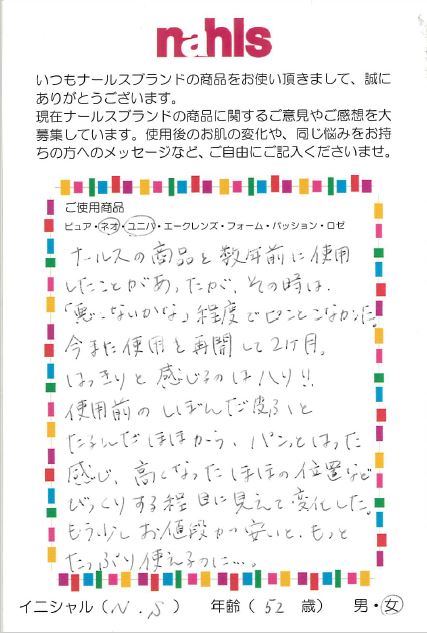 nahls
いつもナールスブランドの商品をお使い頂きまして、誠に
ありがとうございます。
現在ナールスブランドの商品に関するご意見やご感想を大
募集しています。使用後のお肌の変化や、同じ悩みをお持
ちの方へのメッセージなど、ご自由にご記入くださいませ。
ご使用商品
ピュア・ネオ・ユニバ・エークレンズ・フォーム・パッション・ロゼ
ナールスの商品を数年前に使用
したことがあったが、その時は、
「悪くないかな」程度でピンとこなかった。
今また使用を再開して2ヶ月。
はっきりと感じるのはハリ!!
使用前のしぼんだ皮ふと
たるんだほほから、パンッとはった
感じ、高くなったほほの位置など
びっくりする程目に見えて変化した。
もう少しお値段が安いと、もっと
たっぷり使えるのに…。
イニシャル(N.S) 年齢(52 歳) 男・女